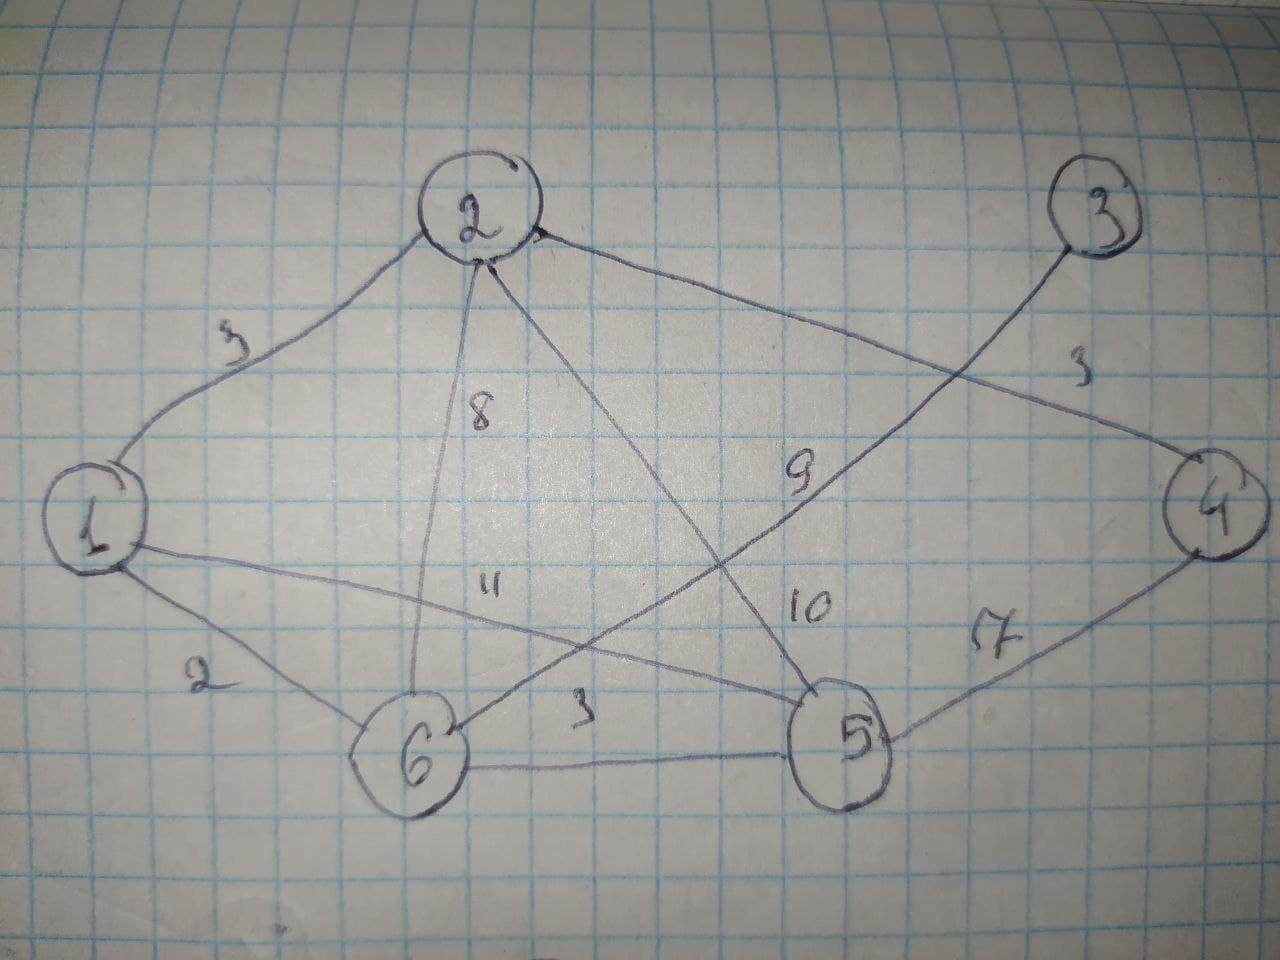 2
3
3
3
8
9
4
1
11
10
2
3
6
5